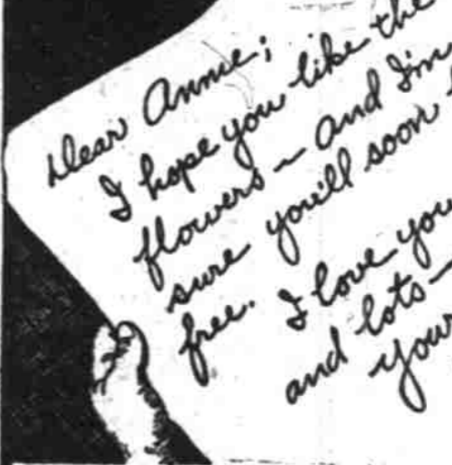 Dear Annie;
I hope you like the
flowers — and I'm
sure you'll soon
free. I love you
and lots —
your